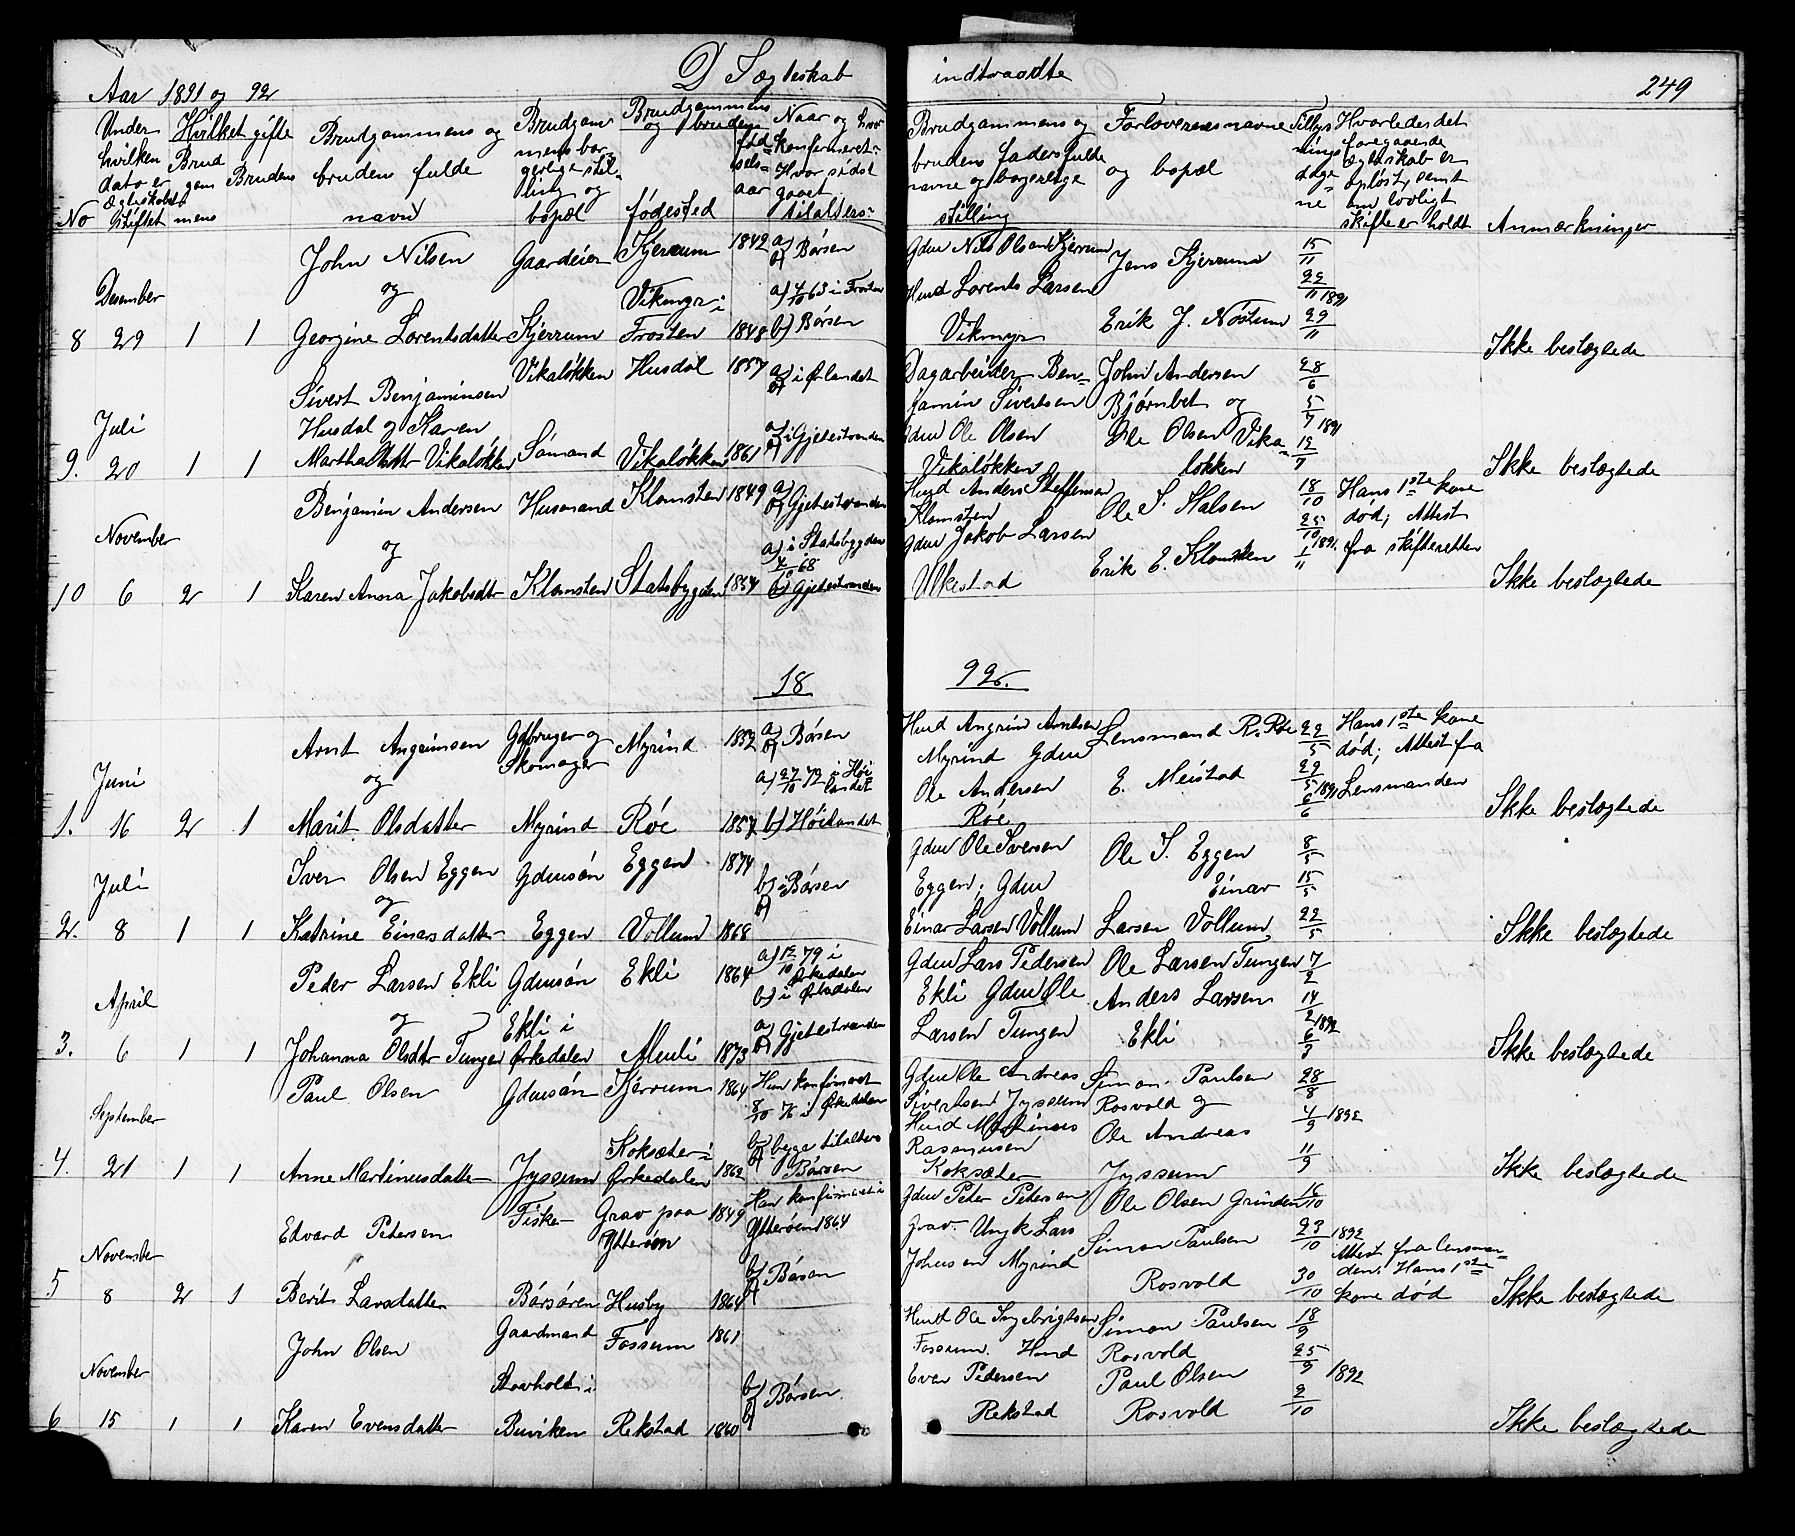 D I ægteskab indtraadte
Aar 1891 og 92
249
No
Under hvilken dato er ægteskabet stiftet
Hvilket gifte
Brudgommens
Brudens
Brudgommens og brudens fulde navne
Brudgommens borgerlige stilling og bopæl
Brudgommens og brudens
fødested
fødselsaar
Naar og hvor konfirmeret: Hvor sidst gaaet tilalters:
Brudgommens og brudens faders fulde navne og borgerlige stilling
Forloverenes navne og bopæl
Tillysningsdagene
Hvorledes det foregaaende ægteskab er opløst, samt om lovligt skifte er holdt
Anmærkninger
8 Desember 29 1 1
John Nilsen og Georgine Lorentsdatter
Gaardeier Kjerrum
Kjerrum 1842
Vikmyr i Frosten 1848
a) b) Børsen
a) 4/10 63 i Frosten
b) Børsen
Gdm Nils Olsen Kjerrum
Husd Lorents Larsen Vikmyr
Jens Kjerrum
Erik J. Nostum
15/11 22/11 1891 29/11
Ikke beslægtede
9. Juli 20 1 1
Sivert Benjaminsen Husdal og Karen Martha Olsdtr Vikaløkken
Vikaløkken Sømand
Husdal 1857
Vikaløkken 1861
a) b) i Ørlandet
a) b) i Gjetestranden
Dagarbeider Benjamin Sivertsen
Gdm Ole Olsen Vikaløkken
John Andersen Bjørnbet og
Ole Olsen Vikaløkken
28/6 5/7 1891 12/7
Ikke beslægtede
10 November 6 2 1
Benjamin Andersen og Karen Anna Jakobsdtr
Husmand Klomsten
Klomsten 1849
Statsbygden 1854
a) b) Gjetestranden
a) i Statsbygden 4/10 68
b) Gjetestranden
Husd Anders Steffensen Klomsten
Gdm Jakob Larsen Ulkestad
Ole S. Stalsen
Erik E. Klomsten
18/10 25/10 1891. 1/11
Hans 1ste kone død; Attest fra skifteretten
Ikke beslægtede
1892.
1. Juni 16 2 1
Arnt Angrimsen og Marit Olsdatter
Gdbruger og Skomager Myrind
Myrind 1832
Røe 1857
a) b) Børsen
a) 27/10 72 i Høilandet
b) Høilandet
Husd Angrim Arntsen Myrind
Gdm Ole Andersen Røe
Lensmand R. Røe
E. Meistad
22/5 29/5 1891 6/6
Hans 1ste kone død; Attest fra Lensmanden
Ikke beslægtede
2. Juli 8 1 1
Iver Olsen Eggen og Katrine Einarsdatter
Gdmsøn Eggen
Eggen 1874
Vollum 1868
b) b) i Børsen
Gdm Ole Iversen Eggen; Gdm Einar Larsen Vollum
Ole I. Eggen
Einar Larsen Vollum
8/5 15/5 22/5
Ikke beslægtede
3. April 6 1 1
Peder Larsen Ekli og Johanna Olsdtr Tungen
Gdmsøn Ekli i Ørkedalen
Ekli 1864
Muli 1873
a) 12/10 79 i Ørkedalen
b) i Ørkedalen
a) b) Gjetestranden
Gdm Lars Pedersen Ekli
Gdm Ole Larsen Tungen
Ole Larsen Tungen
Anders Larsen Ekli
7/2 14/2 1892 6/3
Ikke beslægtede
4. September 21 1 1
Paul Olsen
Anne Martinusdatter
Gdmsøn Jyssum
Kjerrum 1864
Koksæter i Ørkedalen 1862
Hun konfirmeret 8/10 76 i Ørkedalen
b) begge tilalters Børsen
Gdm Ole Andreas Sivertsen Jyssum
Husd Martinus Rasmussen Koksæter
Simon Paulsen Rosvold og
Ole Andreas Jyssum
28/8 4/9 1892 11/9
Ikke beslægtede
5 November 8 2 1
Edvard Petersen
Berit Larsdatter
Fisker Børsøren
Grav paa Ytterøen 1849
Husby 1864
Han konfirmeret i Ytterøen 1864
b) Børsen
Gdm Peter Petersen Grav.
Ungk Lars Johnsen Myrind
Ole Olsen Grinden
Simon Paulsen Rosvold
16/10 23/10 1892 30/10
Attest fra lensmanden: Hans 1ste kone død
Ikke beslægtede
6 November 15 1 1
John Olsen
Karen Evensdatter
Gaardmand Stavholdt i Buviken
Fossum 1861
Rekstad 1860
b) Børsen
Husd Ole Ingebrigtsen Fossum.
Husd Even Pedersen Rekstad
Simon Paulsen Rosvold
Paul Olsen Rosvold
18/9 25/9 1892 2/10
Ikke beslægtede